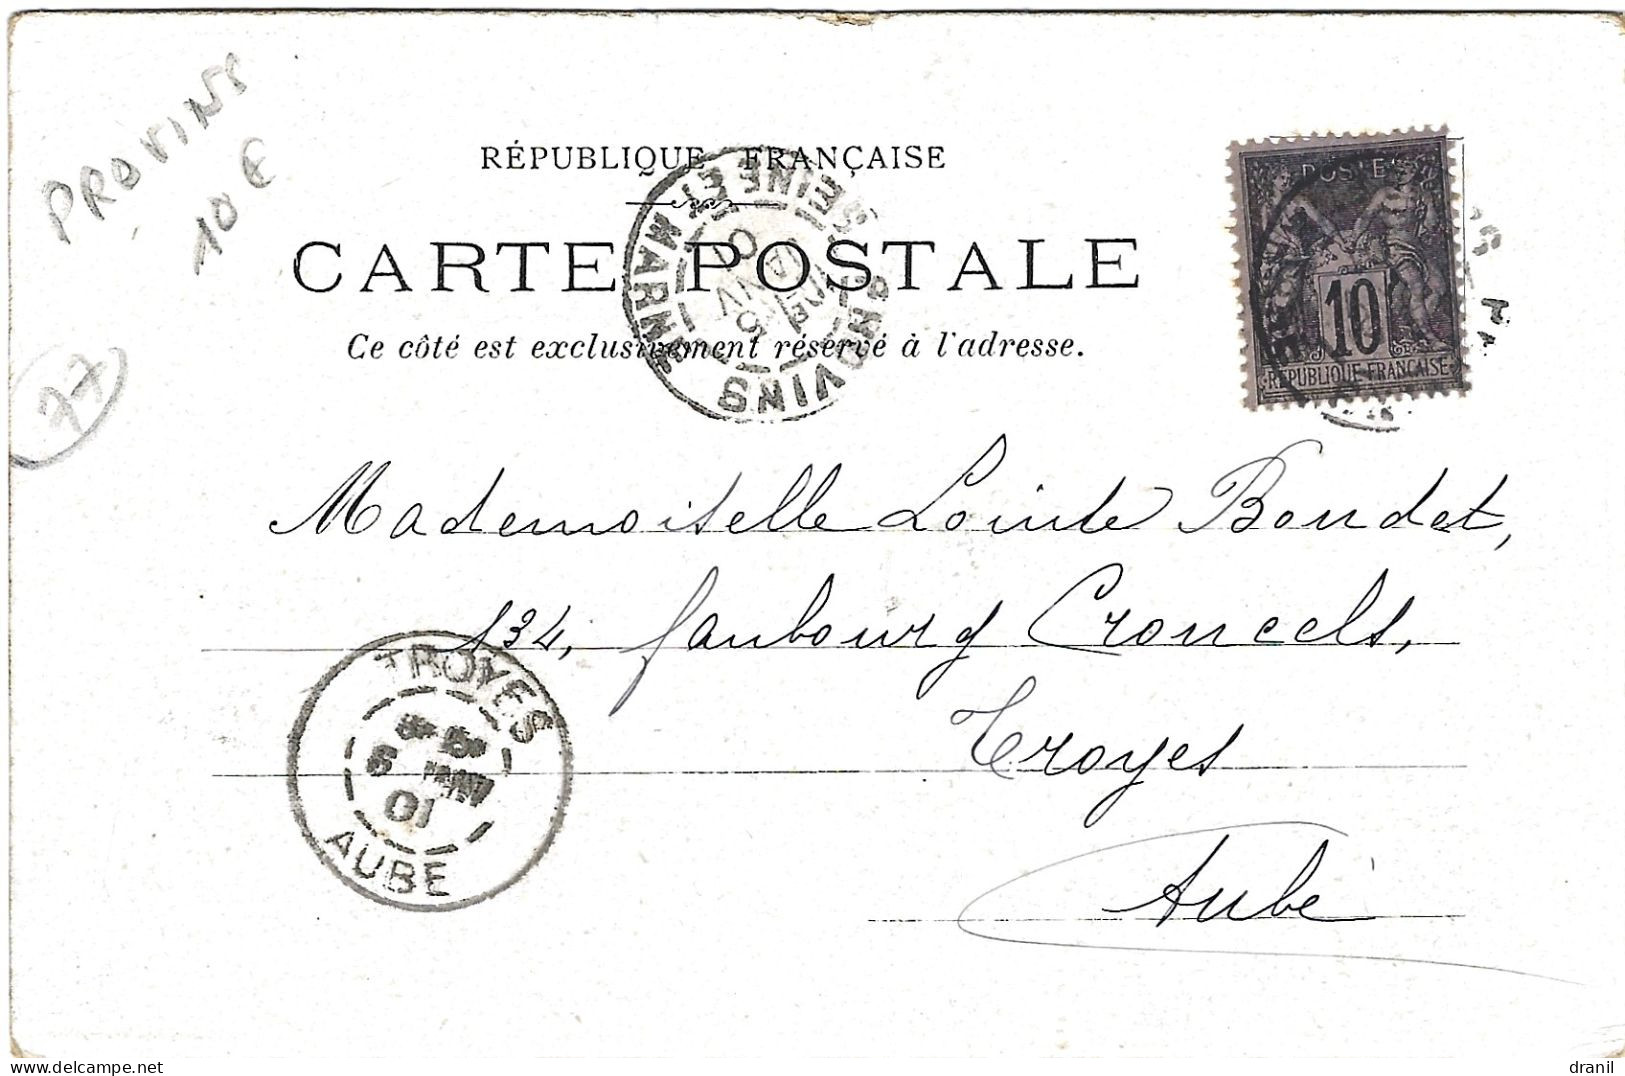 PROVINS
10€
77
RÉPUBLIQUE FRANÇAISE
CARTE POSTALE
Ce côté est exclusivement réservé à l'adresse.
PROVINS
SEINE ET MARNE
POSTES
10
REPUBLIQUE FRANÇAISE
Mademoiselle Lointe Boudet,
134, faubourg Croncels,
Troyes
Aube
TROYES
6
01
AUBE
delcampe.net
dranil